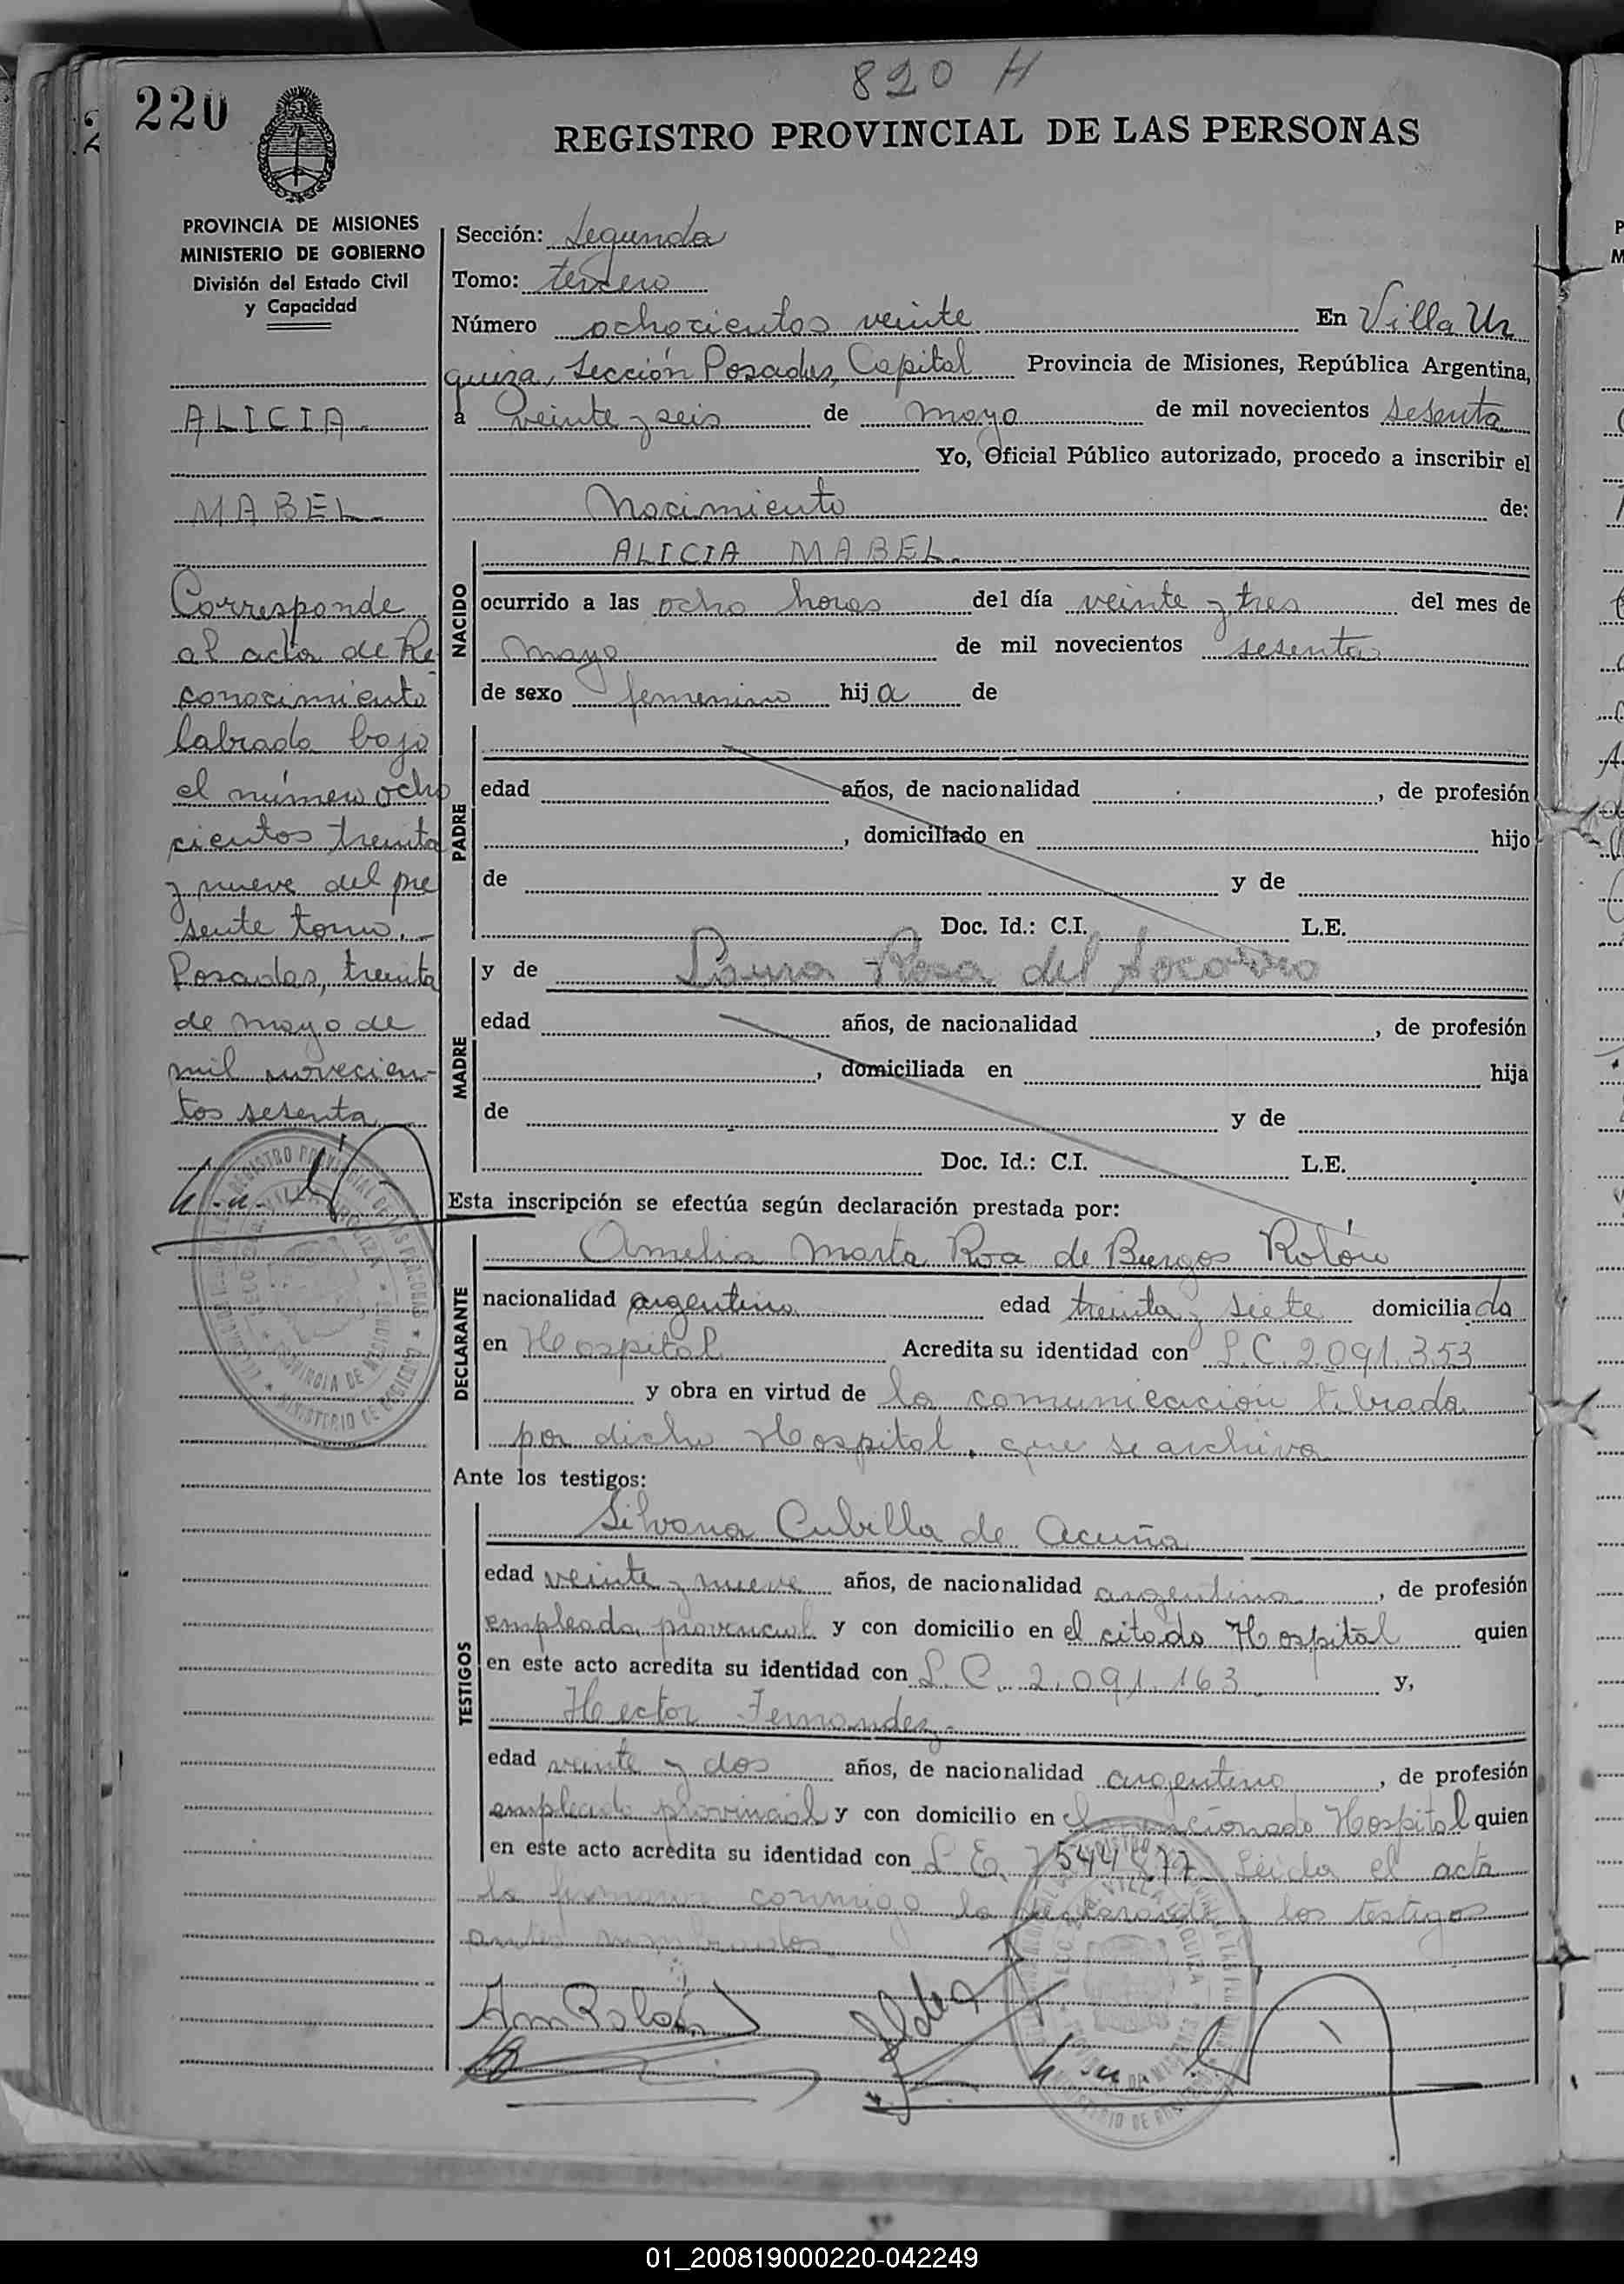 820 H
220
REGISTRO PROVINCIAL DE LAS PERSONAS
PROVINCIA DE MISIONES
MINISTERIO DE GOBIERNO
División del Estado Civil
y Capacidad
ALICIA.
MABEL.
Corresponde
al acta de Re
conocimiento
labrada bajo
el número ocho
cientos treinta
y nueve del pre
sente tomo.
Posadas, treinta
de mayo de
mil novecien-
tos sesenta
Sección: Segunda
Tomo: tercero
Número ochocientos veinte En Villa Ur
quiza, Sección Posadas, Capital Provincia de Misiones, República Argentina,
a veinte y seis de mayo de mil novecientos sesenta
Yo, Oficial Público autorizado, procedo a inscribir el
Nacimiento de:
NACIDO
ALICIA MABEL.
ocurrido a las ocho horas del día veinte y tres del mes de
mayo de mil novecientos sesenta
de sexo femenino hija de
PADRE
edad años, de nacionalidad , de profesión
, domiciliado en hijo
de y de
Doc. Id.: C.I. L.E.
MADRE
y de Laura Rosa del Socorro
edad años, de nacionalidad , de profesión
, domiciliada en hija
de y de
Doc. Id.: C.I. L.E.
Esta inscripción se efectúa según declaración prestada por:
DECLARANTE
Amelia Marta Roa de Burgos Rolón
nacionalidad argentina edad treinta y siete domiciliada
en Hospital Acredita su identidad con L.C. 2.091.353
y obra en virtud de la comunicación librada
por dicho Hospital, que se archiva
Ante los testigos:
TESTIGOS
Silvana Cubilla de Acuña
edad veinte y nueve años, de nacionalidad argentina , de profesión
empleada provincial y con domicilio en el citado Hospital quien
en este acto acredita su identidad con L.C. 2.091.163. y,
Hector Fernandez.
edad veinte y dos años, de nacionalidad argentino , de profesión
empleado provincial y con domicilio en el mencionado Hospital quien
en este acto acredita su identidad con L.E. 7544877 Leida el acta
la firman conmigo la declarante y los testigos
antes nombrados
Am Rolón
01_200819000220-042249